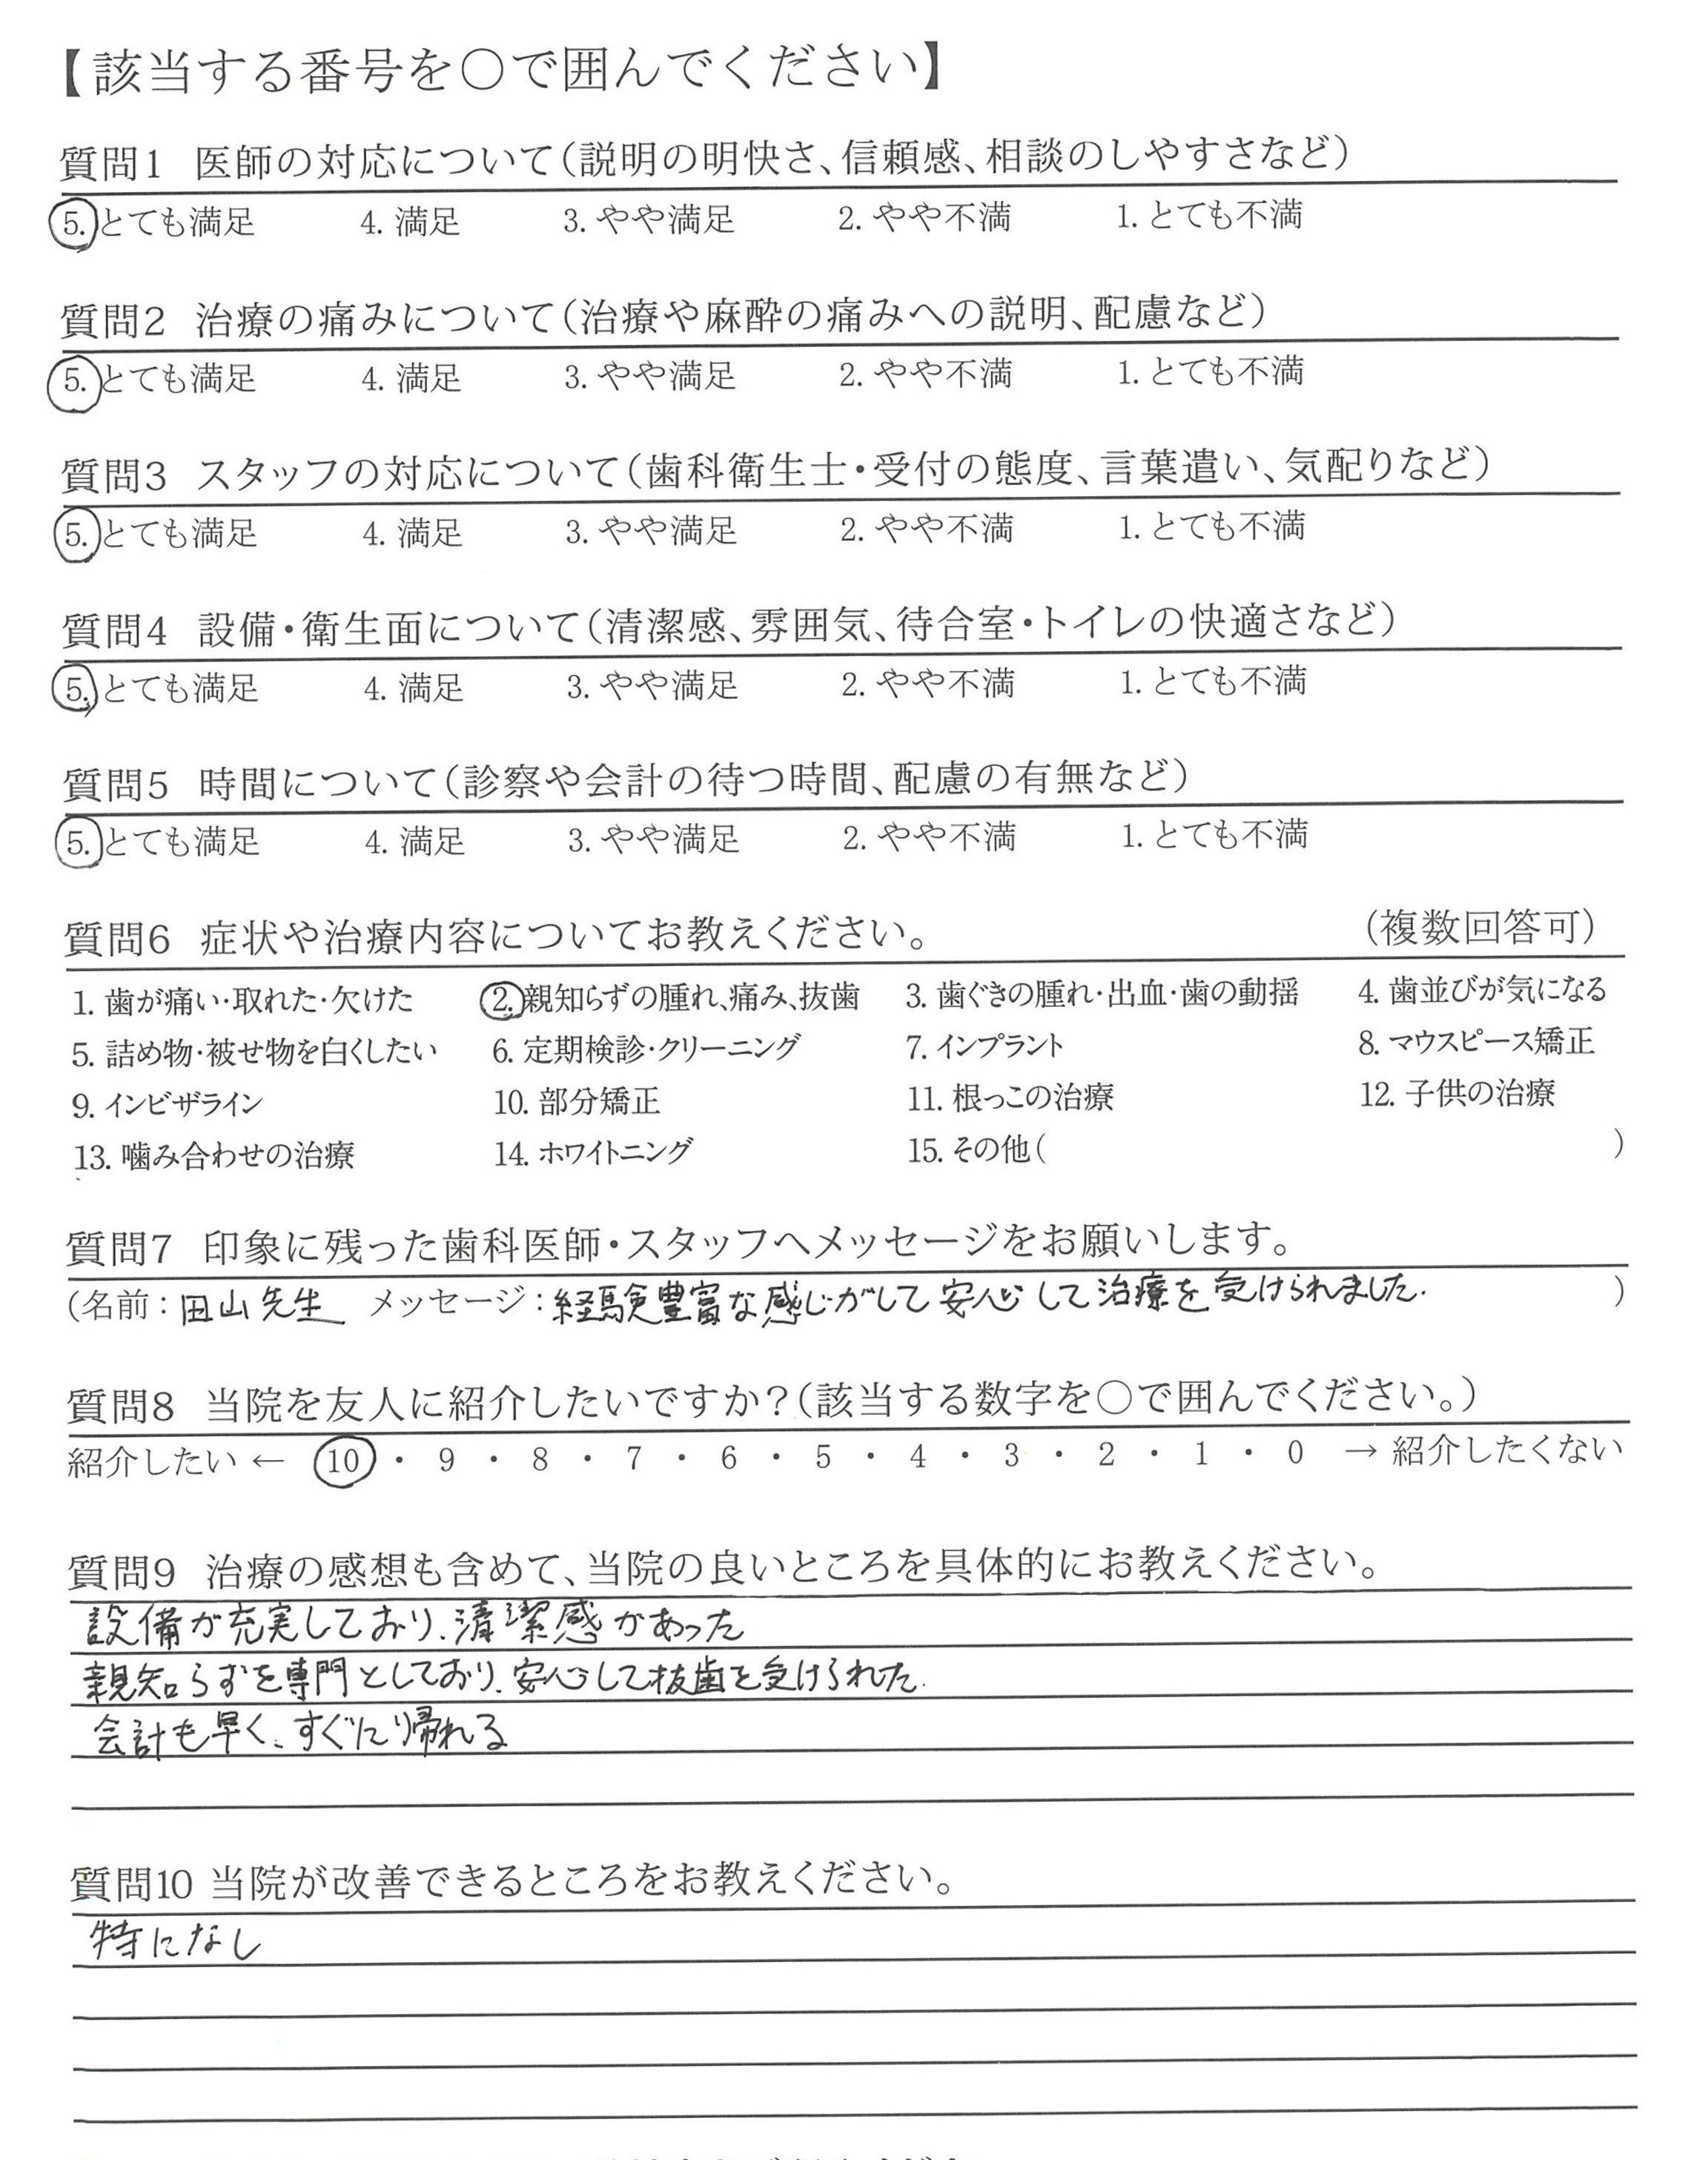 【該当する番号を○で囲んでください】
質問1 医師の対応について(説明の明快さ、信頼感、相談のしやすさなど)
5. とても満足 4. 満足 3. やや満足 2. やや不満 1. とても不満
質問2 治療の痛みについて(治療や麻酔の痛みへの説明、配慮など)
5. とても満足 4. 満足 3. やや満足 2. やや不満 1. とても不満
質問3 スタッフの対応について(歯科衛生士・受付の態度、言葉遣い、気配りなど)
5. とても満足 4. 満足 3. やや満足 2. やや不満 1. とても不満
質問4 設備・衛生面について(清潔感、雰囲気、待合室・トイレの快適さなど)
5. とても満足 4. 満足 3. やや満足 2. やや不満 1. とても不満
質問5 時間について(診察や会計の待つ時間、配慮の有無など)
5. とても満足 4. 満足 3. やや満足 2. やや不満 1. とても不満
質問6 症状や治療内容についてお教えください。 (複数回答可)
1. 歯が痛い・取れた・欠けた 2. 親知らずの腫れ、痛み、抜歯 3. 歯ぐきの腫れ・出血・歯の動揺 4. 歯並びが気になる
5. 詰め物・被せ物を白くしたい 6. 定期検診・クリーニング 7. インプラント 8. マウスピース矯正
9. インビザライン 10. 部分矯正 11. 根っこの治療 12. 子供の治療
13. 噛み合わせの治療 14. ホワイトニング 15. その他( )
質問7 印象に残った歯科医師・スタッフへメッセージをお願いします。
(名前：田山先生 メッセージ：経験豊富な感じがして安心して治療を受けられました. )
質問8 当院を友人に紹介したいですか？(該当する数字を○で囲んでください。)
紹介したい ← 10 ・ 9 ・ 8 ・ 7 ・ 6 ・ 5 ・ 4 ・ 3 ・ 2 ・ 1 ・ 0 → 紹介したくない
質問9 治療の感想も含めて、当院の良いところを具体的にお教えください。
設備が充実しており、清潔感があった
親知らずを専門としており、安心して抜歯を受けられた.
会計も早く、すぐに帰れる
質問10 当院が改善できるところをお教えください。
特になし